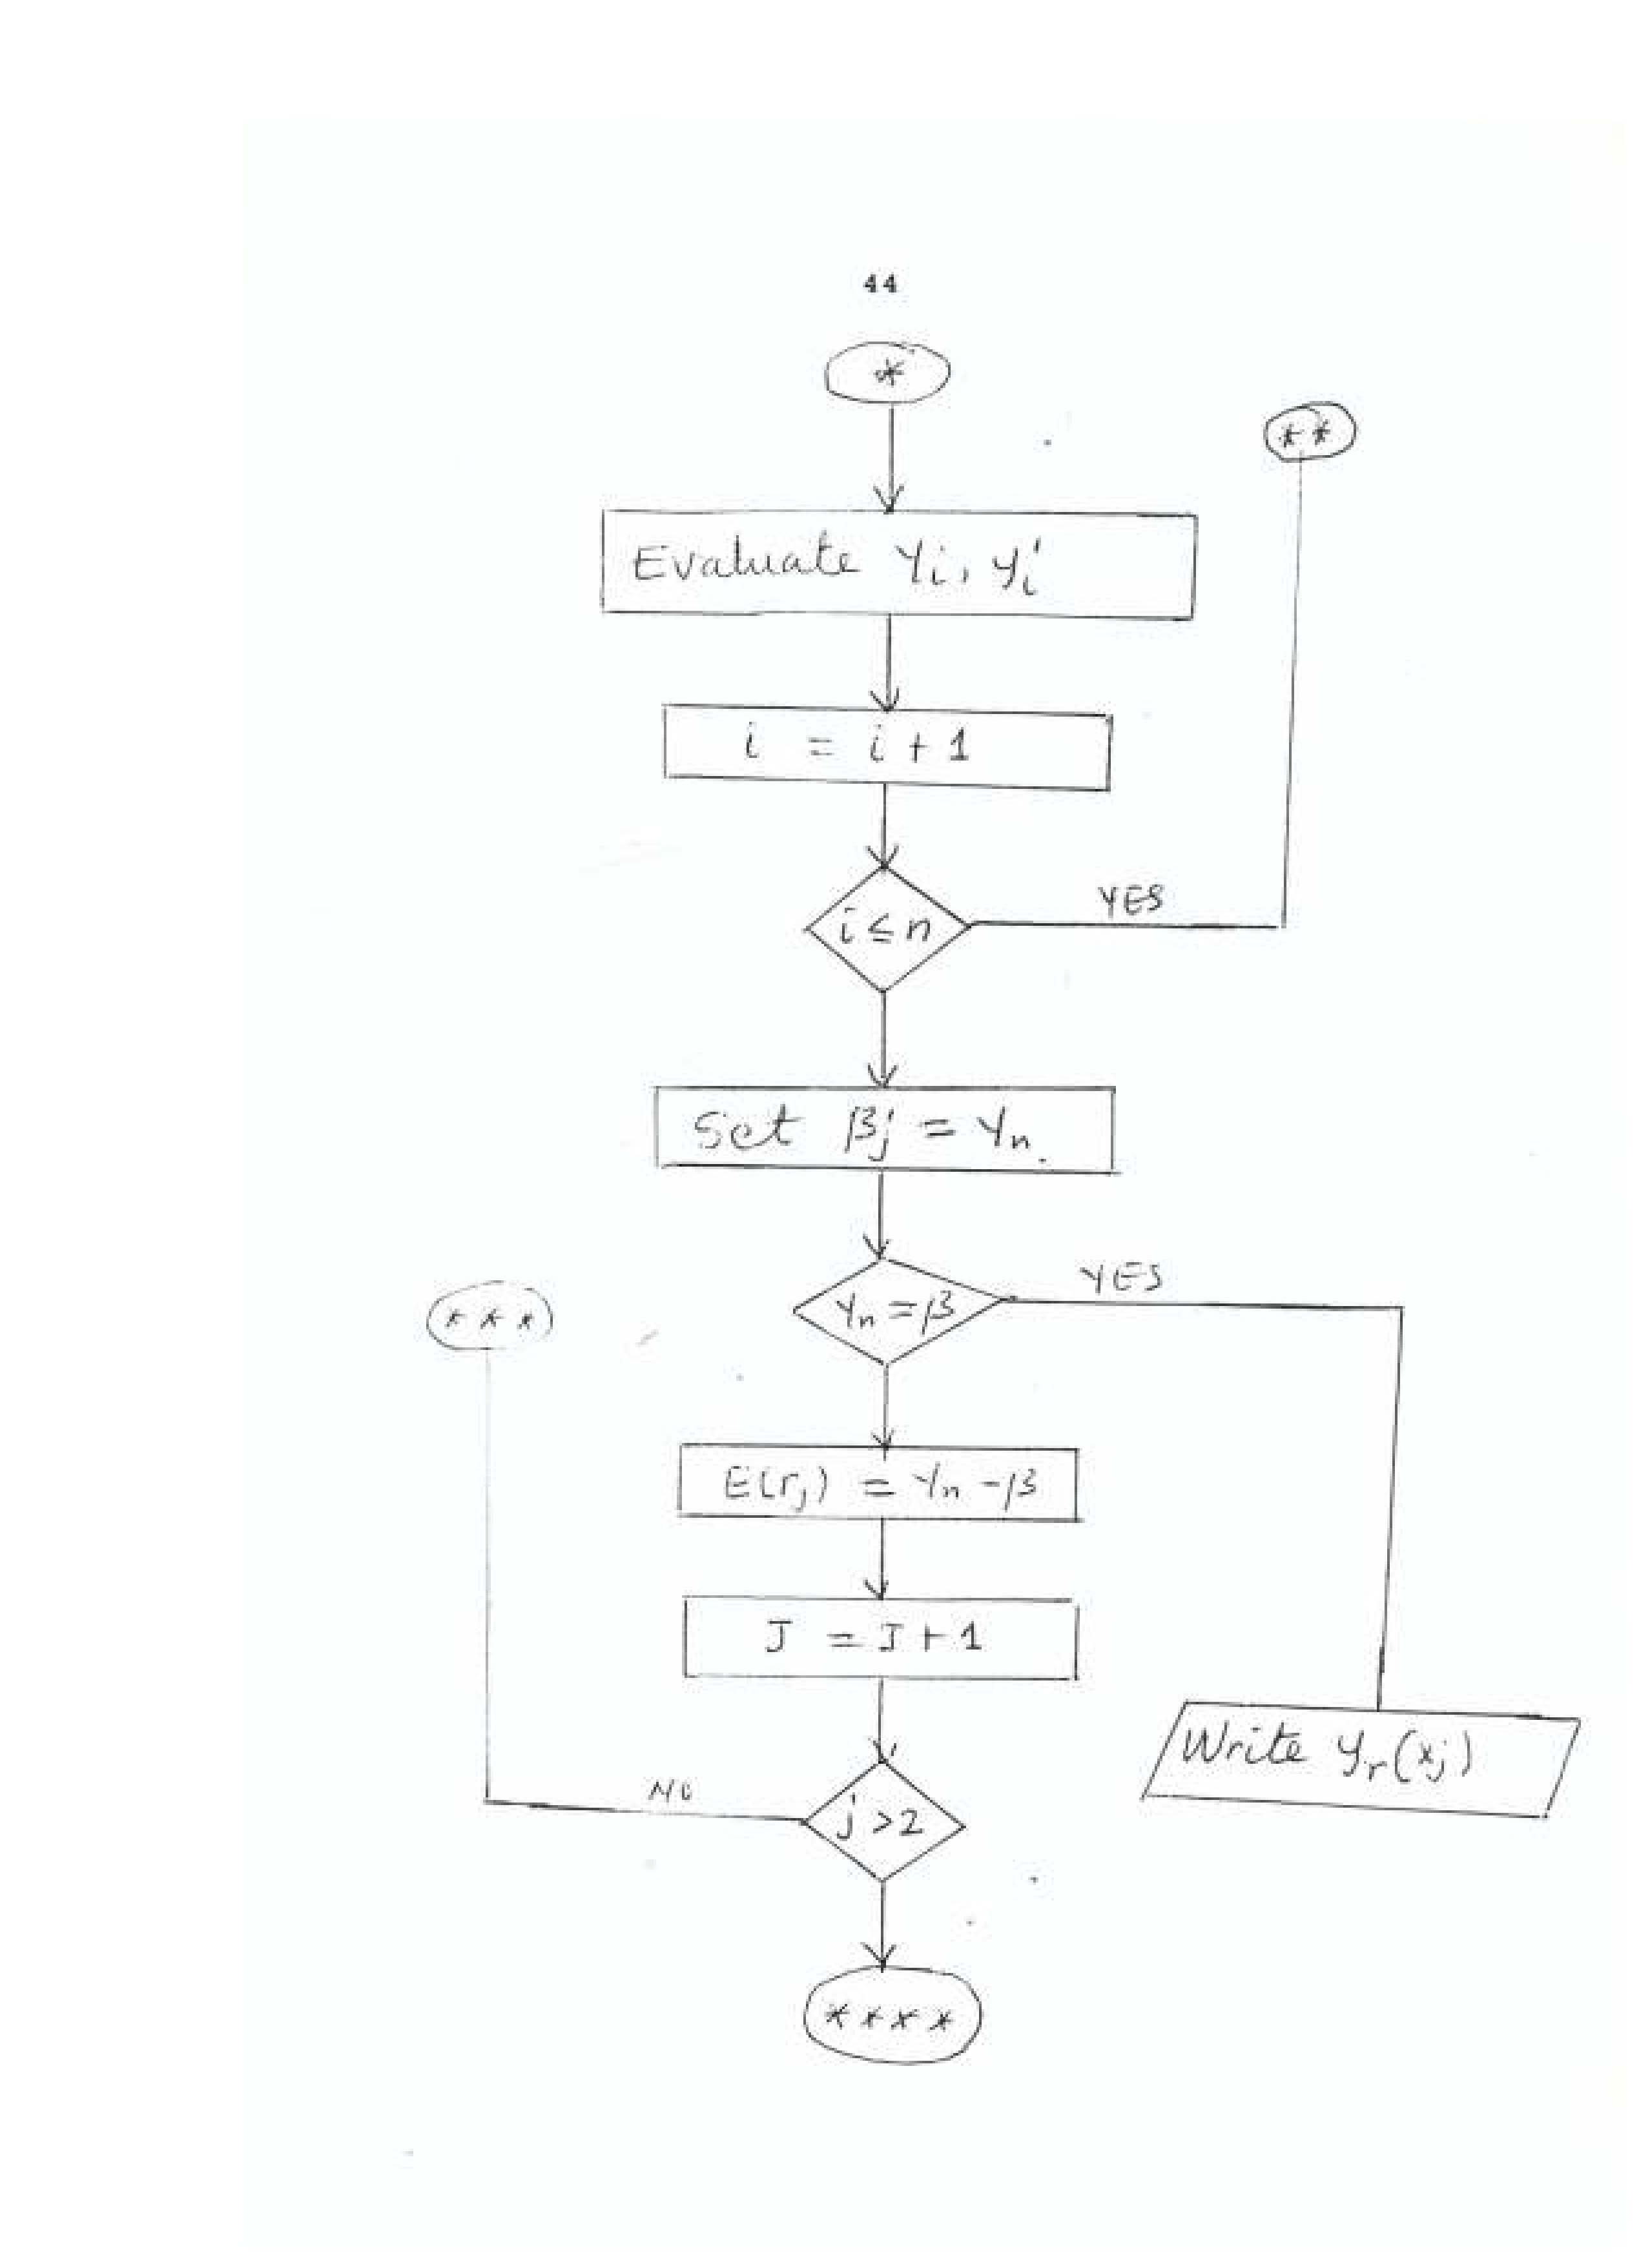 44
*
**
Evaluate yi, yi'
i = i + 1
i ≤ n
YES
Set βj = yn.
yn = β
YES
***
E(rj) = yn - β
J = J + 1
Write yr(xj)
NO
j > 2
****